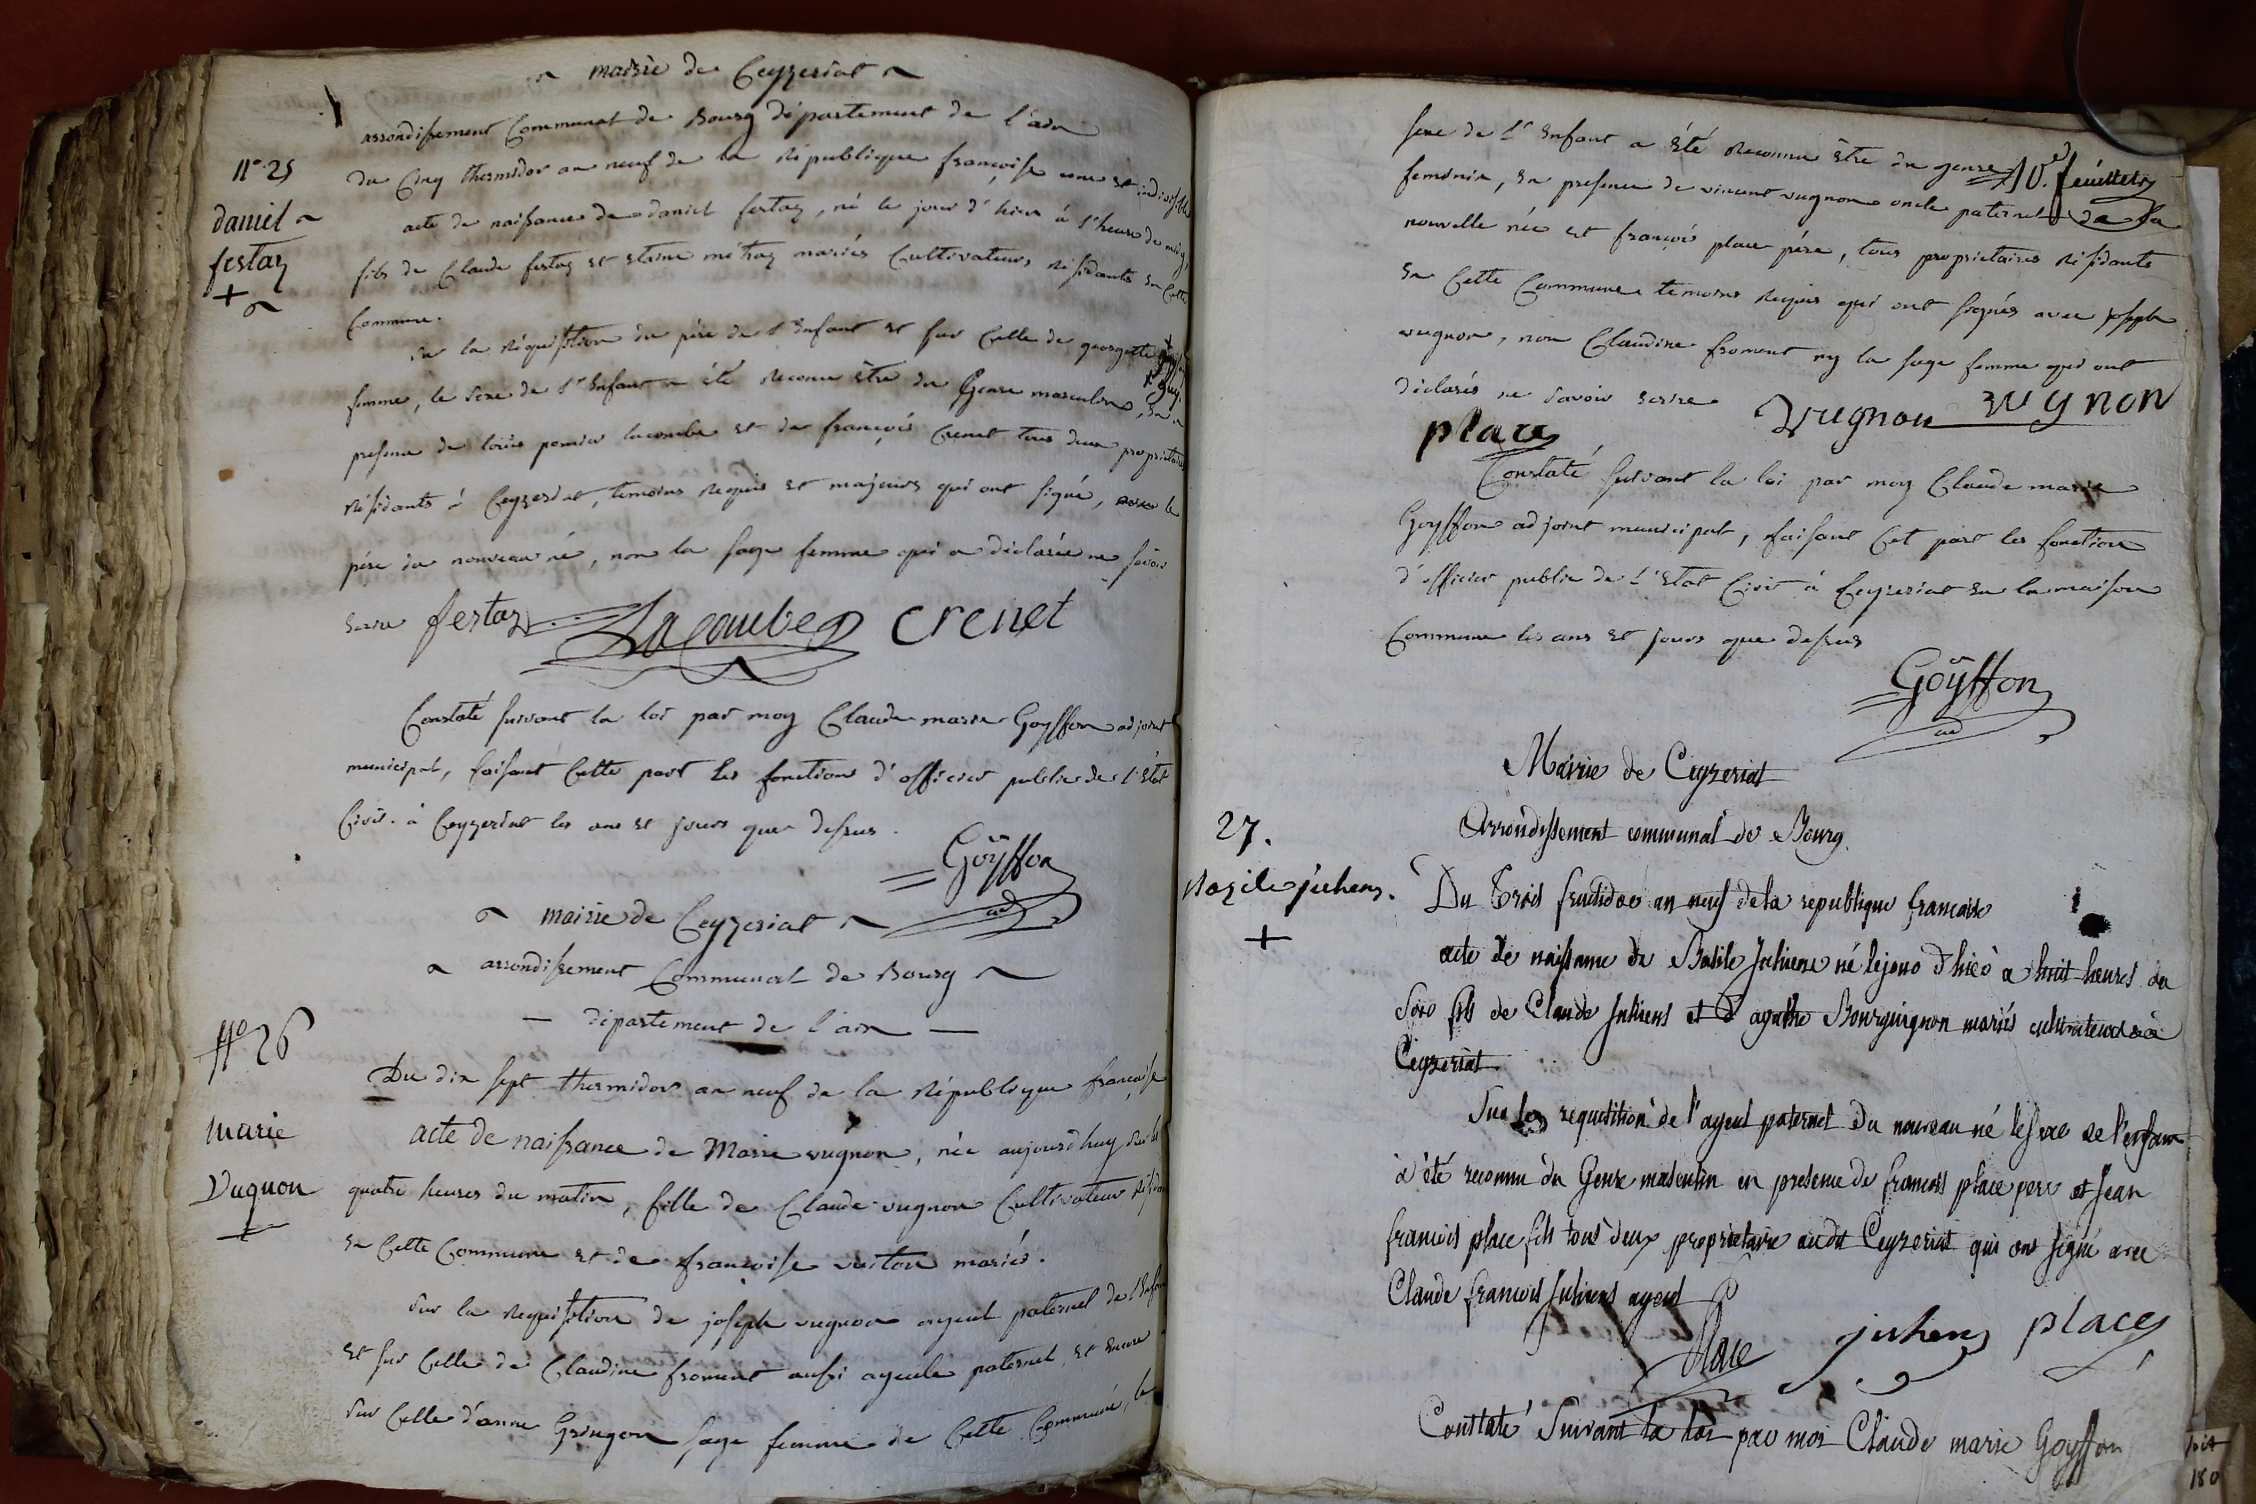 mairie de Ceyzeriat
arrondissement Communal de Bourg département de l'ain
N° 25
daniel
festaz
+
du Cinq thermidor an neuf de la République françoise une et indivisible
acte de naissance de daniel festaz, né le jour d'hier à l'heure de midy
fils de Claude festaz et mariés Cultivateurs résidants en Cette
Commune.
Sur la réquisition du père de l'Enfant et sur Celle de georgette
femme, le Sexe de l'Enfant a été reconnu être du Genre masculin, en
présence de louis lacombe et de françois Crenet tous deux propriétaires
résidants à Ceyzeriat, témoins requis et majeurs qui ont signé, avec le
père du nouveau né, non la sage femme qui a déclarée ne savoir
écrire festaz Lacombe Crenet
Constaté suivant la loi par moy Claude marie Goyffon adjoint
municipal, faisant Cette part les fonctions d'officier public de l'état
Civil. à Ceyzeriat les ans et jours que dessus.
Goÿffon
mairie de Ceyzeriat
arrondissement Communal de Bourg
département de l'ain
N° 26
marie
Vugnon
+
Du dix sept thermidor an neuf de la République françoise
acte de naissance de Marie vugnon, née aujourd'huy sur les
quatre heures du matin, fille de Claude vugnon Cultivateur résidant
en Cette Commune et de françoise mariés.
Sur la requisition de joseph vugnon ayeul paternel de l'Enfant
et sur Celle de Claudine froment aussi ayeule paternel, et encore
sur Celle d'anne Gringon sage femme de Cette Commune, le
10e feuillet
sexe de l'Enfant a été reconnu être du genre
feminin, en presence de vincent vugnon oncle paternel de la
nouvelle née et françois place père, tous propriétaires résidants
en Cette Commune temoins requis qui ont signés avec joseph
vugnon, non Claudine froment ny la sage femme qui ont
déclarés ne savoir ecrire Vugnon vugnon
place
Constaté suivant la loi par moy Claude marie
Goyffon adjoint municipal, faisant Cet part les fonctions
d'officier public de l'Etat Civil à Ceyzeriat en la maison
Commune les ans et jours que dessus
Goÿffon
Mairie de Ceyzeriat
Arrondissement communal de Bourg.
27.
Bazile juhens.
+
Du Trois fructidor an neuf de la republique francaise
acte de naissance de Basile Juhens né le jour d'hier à huit heures du
soir fils de Claude Juhens et d'agathe Bourguignon mariés cultivateurs à
Ceyzeriat.
Sur la requisition de l'ayeul paternel du nouveau né le sexe de l'enfant
à été reconnu du Genre masculin en presence de francois place pere et Jean
francois place fils tous deux propriétaire audit Ceyzeriat qui ont signé avec
Claude francois Juhens ayeul
Place juhens place
Constaté Suivant la loi par moi Claude marie Goyffon